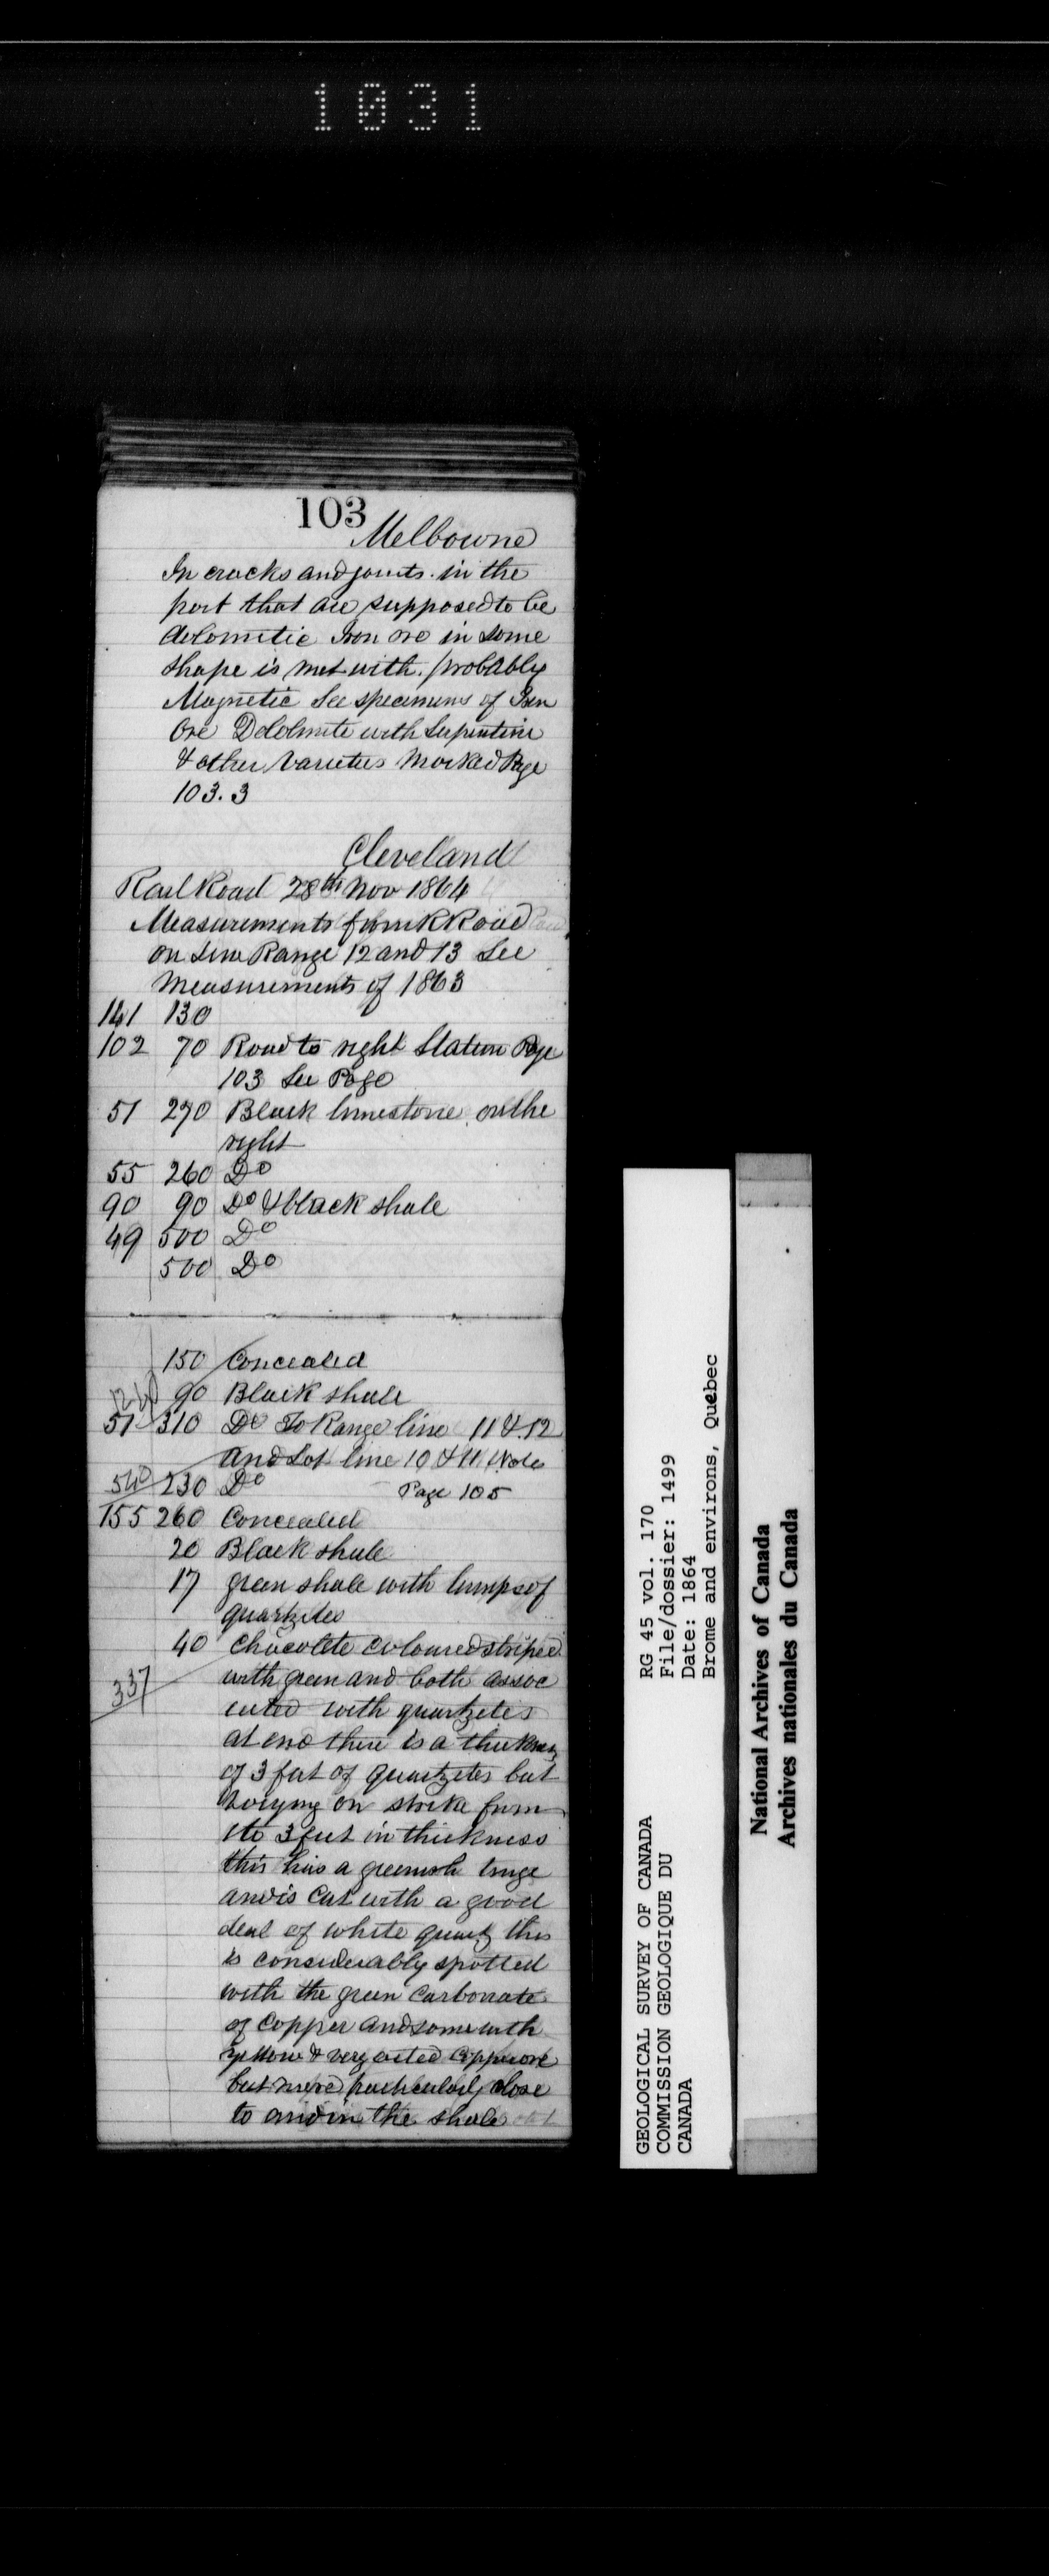 1031
103
Melbourne
In cracks and joints in the
part that are supposed to be
dolomitic Iron ore in some
shape is met with. probably
Magnetic See specimens of Iron
Ore Dolomite with Serpentine
& other Varieties Marked Page
103.3
Cleveland
Rail Road 28th Nov 1864
Measurements from R Road
on Line Range 12 and 13 See
Measurements of 1863
141 130
102 70 Road to right Station Page
103 See Page
51 270 Black limestone on the
right
55 260 Do
90 90 Do & black shale
49 500 Do
500 Do
150 Concealed
240 90 Black shale
51 310 Do To Range line 11 & 12
and Lot line 10 & 11 Note
540 230 Do Page 105
155 260 Concealed
20 Black shale
17 green shale with lumps of
quartzites
40 Chocolete coloured striped
337 with green and both assoc
iated with quartzites
at end there is a thickness
of 3 feet of quartzites but
varying on strike from
1 to 3 feet in thickness
this has a greenish tinge
and is cut with a good
deal of white quartz this
is considerably spotted
with the green carbonate
of copper and some with
yellow & copper ore
but more particularly close
to and in the shale
GEOLOGICAL SURVEY OF CANADA
COMMISSION GEOLOGIQUE DU
CANADA
RG 45 vol. 170
File/dossier: 1499
Date: 1864
Brome and environs, Québec
National Archives of Canada
Archives nationales du Canada